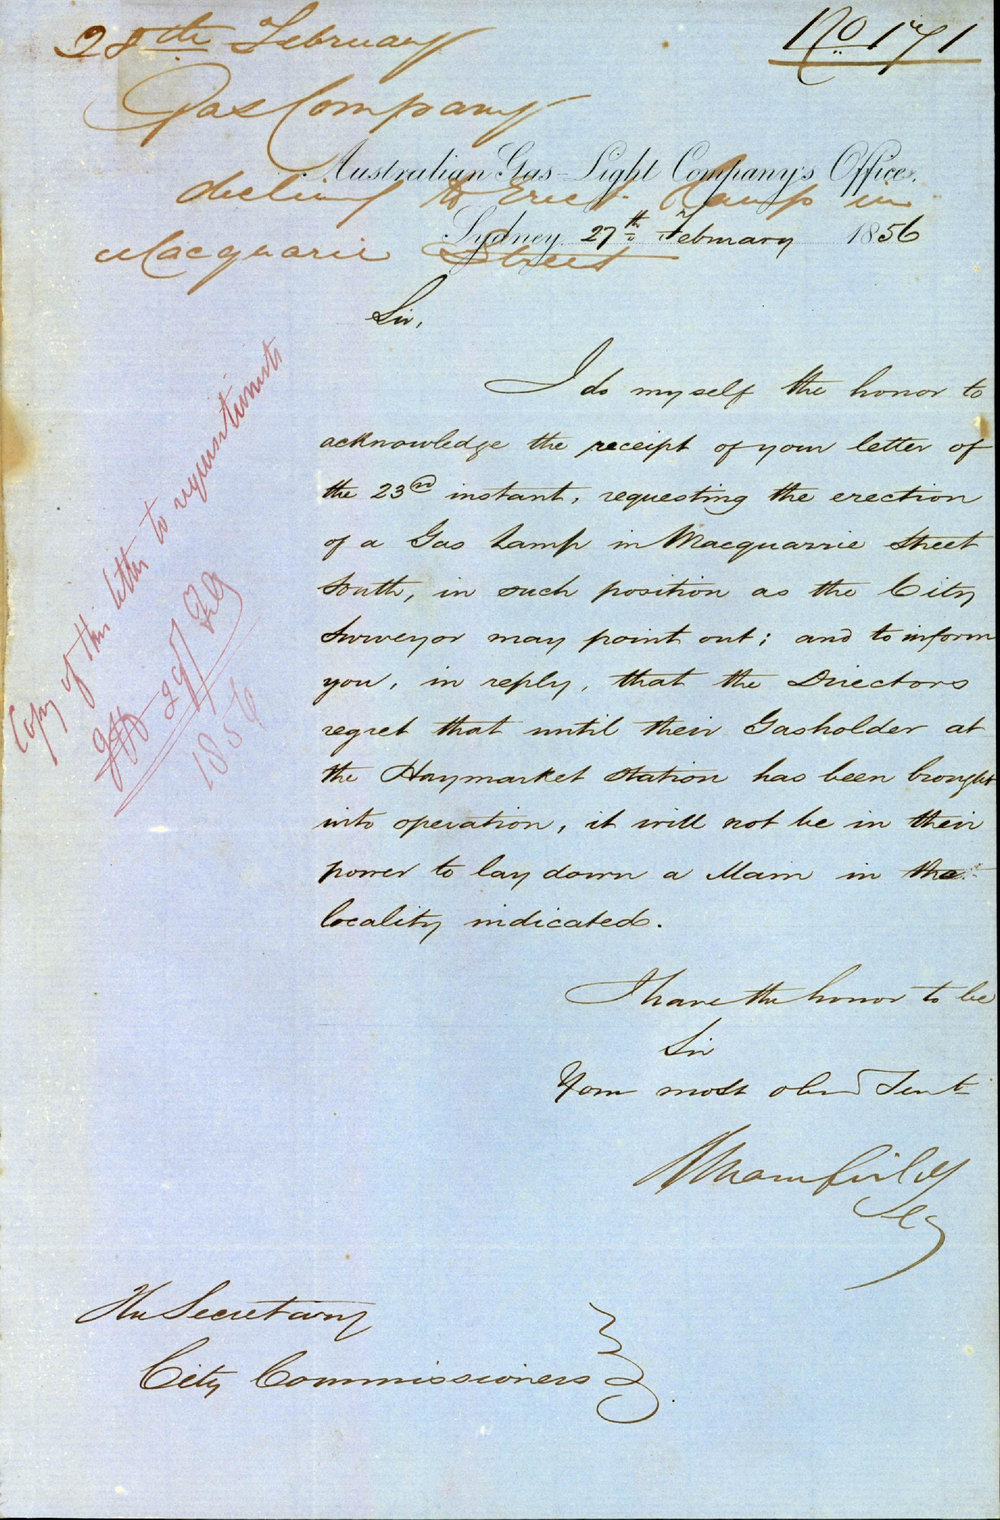 28th February
No 171
Gas Company
Australian Gas-Light Company's Office,
declining to Erect Lamp in
Sydney 27th February 1856
Macquarie Street
Sir,
I do myself the honor to
acknowledge the receipt of your letter of
the 23rd instant, requesting the erection
of a Gas Lamp in Macquarrie Street
South, in such position as the City
Surveyor may point out; and to inform
you, in reply, that the Directors
regret that until their Gasholder at
the Haymarket Station has been brought
into operation, it will not be in their
power to lay down a Main in the
locality indicated.
Copy of this letter to requisitionists
29/ Feb
1856
I have the honor to be
Sir
Your most obed Servt
Secy
The Secretary
City Commissioners